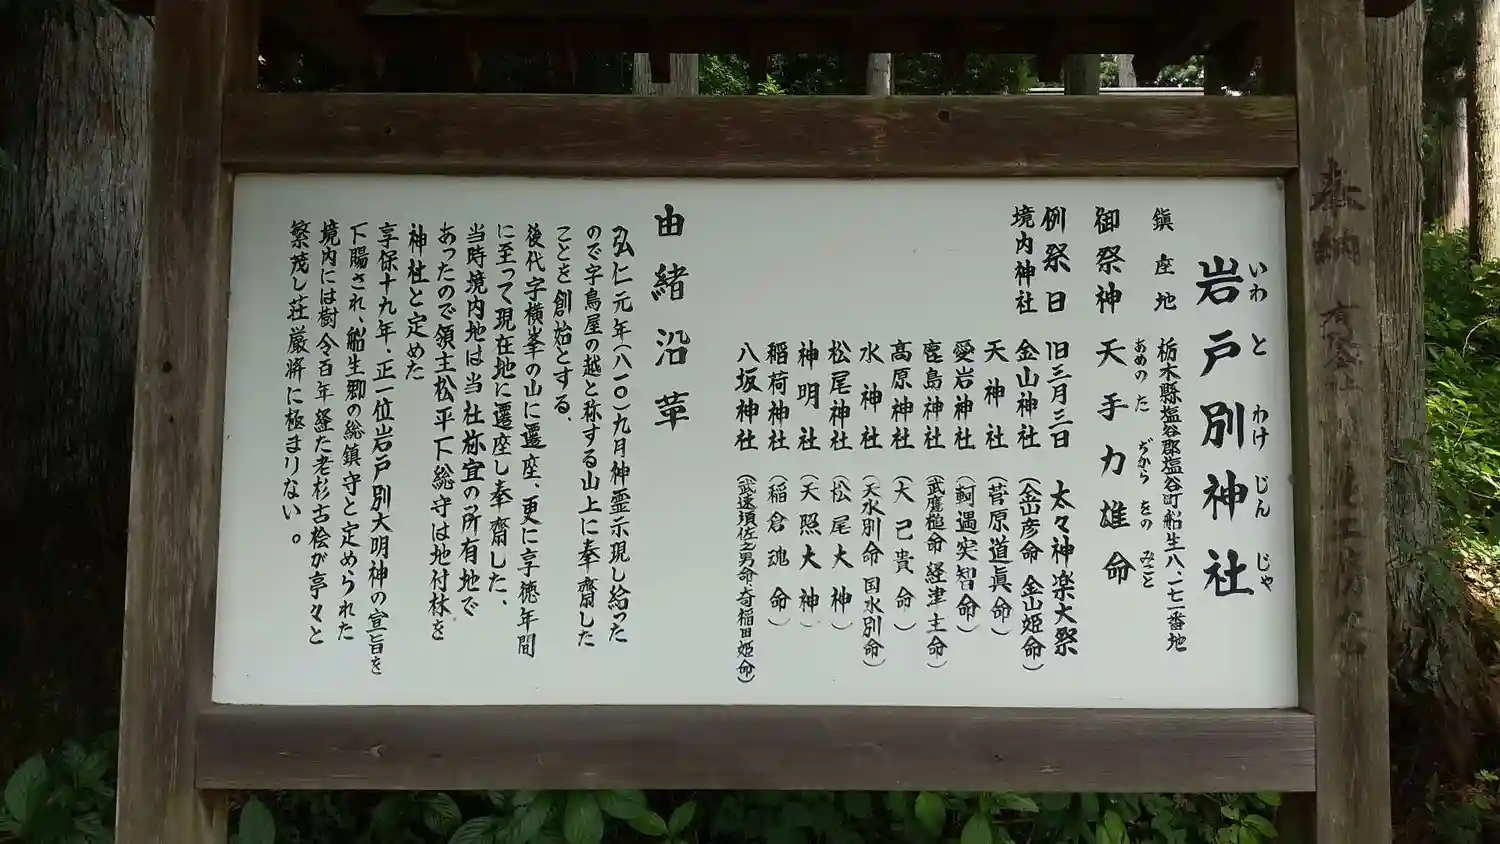 岩戸別神社
いわとわけじんじゃ
鎮座地 栃木縣塩谷郡塩谷町船生八、七一番地
御祭神 天手力雄命
あめのたぢからをのみこと
例祭日 旧三月三日 太々神楽大祭
境内神社 金山神社 (金山彦命 金山姫命)
天神社 (菅原道眞命)
愛岩神社 (軻遇突智命)
鹿島神社 (武鷹槌命 経津主命)
髙原神社 (大己貴命)
水神社 (天水別命 国水別命)
松尾神社 (松尾大神)
神明社 (天照大神)
稲荷神社 (稲倉魂命)
八坂神社 (武速須佐之男命、奇稲田姫命)
由緒沿革
弘仁元年(八一〇)九月神霊示現し給った
ので字鳥屋の越と称する山上に奉齋した
ことを創始とする、
後代字横峯の山に遷座、更に享徳年間
に至って現在地に遷座し奉齋した、
当時境内地は当社祢宜の所有地で
あったので領主松平下総守は地付林を
神社と定めた
享保十九年、正一位岩戸別大明神の宣旨を
下賜され、船生郷の総鎮守と定められた
境内には樹令百年経た老杉古桧が亭々と
繁茂し荘厳将に極まりない。
奉納 有限会社